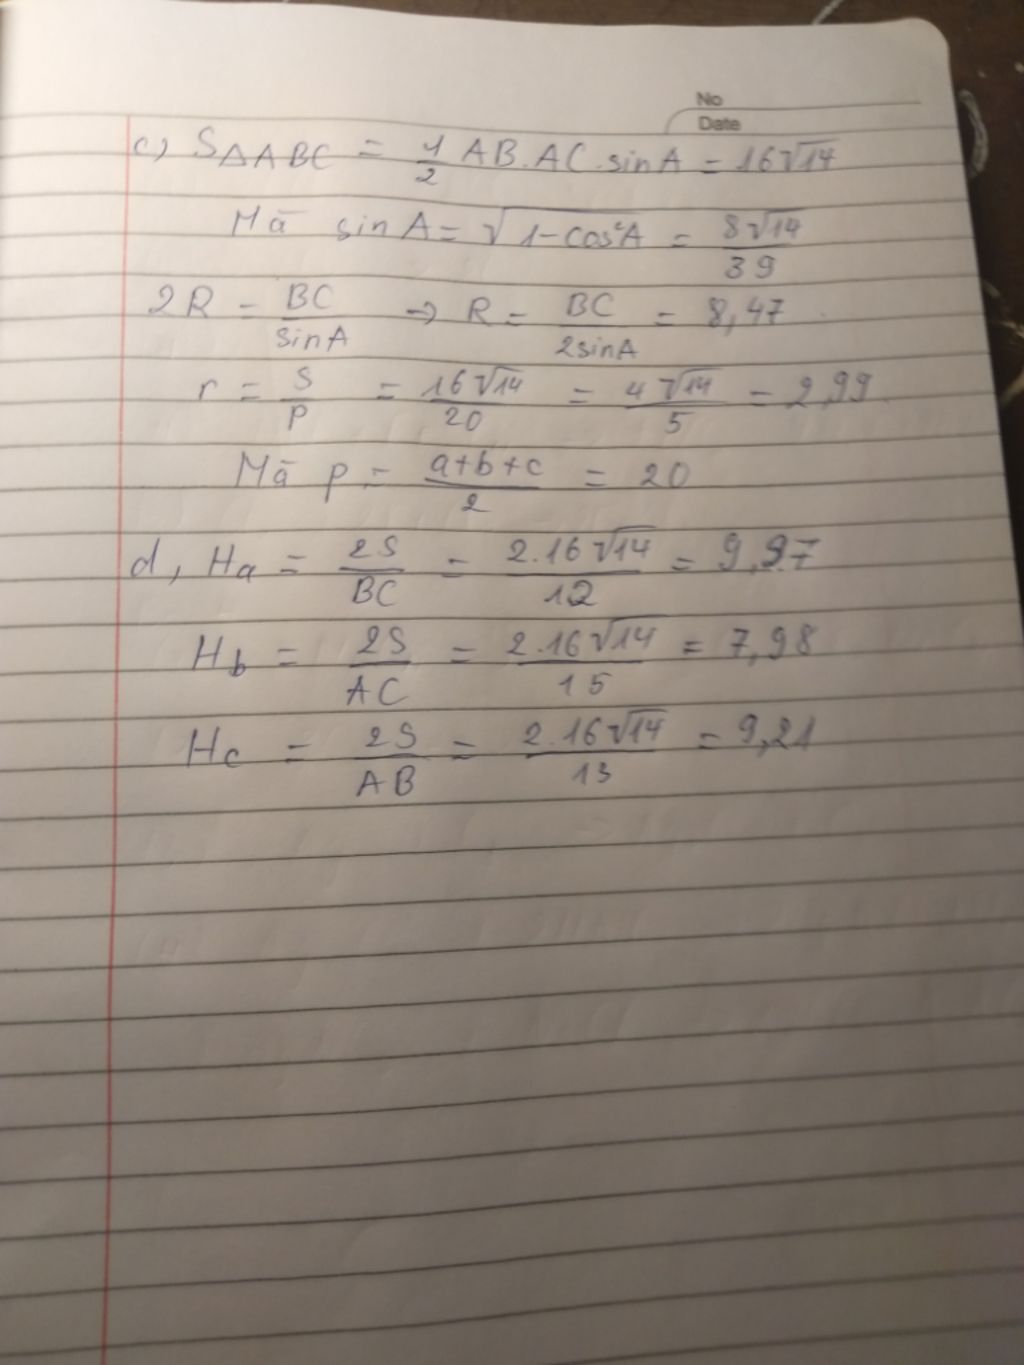 No
Date
c) S△ABC = 1/2 AB.AC.sinA = 16√14
Mà sinA = √1-cos²A = 8√14/39
2R = BC/sinA → R = BC/2sinA = 8,47
r = S/P = 16√14/20 = 4√14/5 = 2,99
Mà p = a+b+c/2 = 20
d, Ha = 2S/BC = 2.16√14/12 = 9,97
Hb = 2S/AC = 2.16√14/15 = 7,98
Hc = 2S/AB = 2.16√14/13 = 9,21